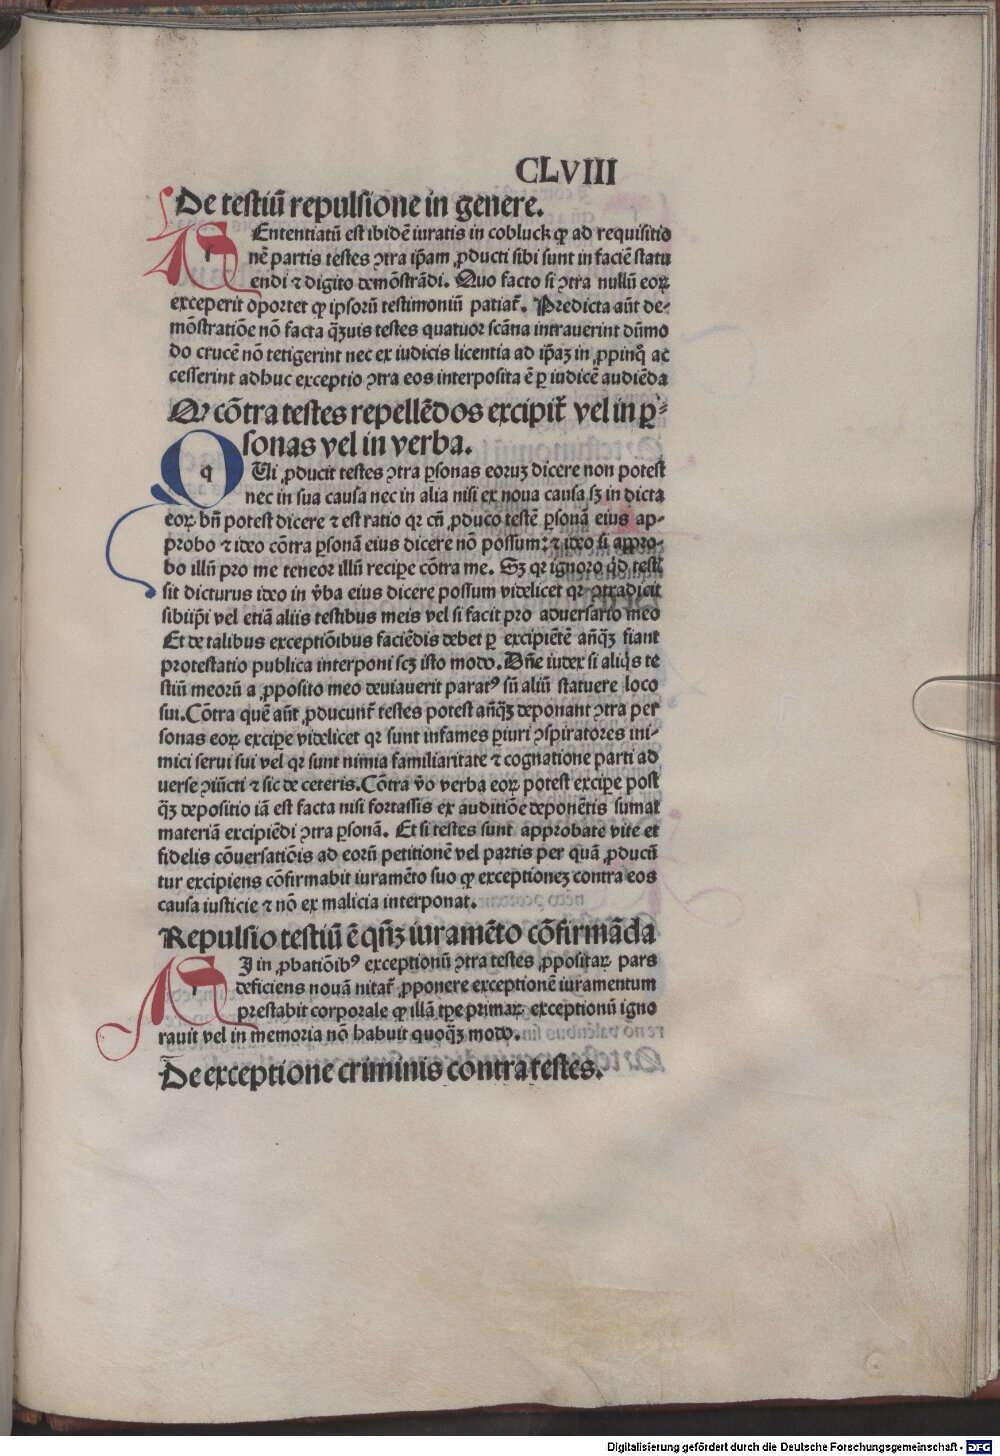 CLVIII
De testiū repulsione in genere.
SEntentiatū est ibidē iuratis in cobluck ꝙ ad requisitio
nē partis testes ꝯtra ip̄am ꝓducti sibi sunt in faciē statu
endi ⁊ digito demōstrādi. Quo facto si ꝯtra nullū eoꝝ
exceperit oportet ꝙ ipsorū testimoniū patiat̄. Predicta aūt de⸗
mōstratiōe nō facta q̄ꝫuis testes quatuor scāna intrauerint dūmo
do crucē nō tetigerint nec ex iudicis licentia ad ip̄aꝫ in ꝓpinq̊ ac
cesserint adhuc exceptio ꝯtra eos interposita ē ꝑ iudicē audiēda
Qꝛ cōtra testes repellēdos excipit̄ vel in ꝑ⸗
sonas vel in verba.
QUi ꝓducit testes ꝯtra ꝑsonas eoruꝫ dicere non potest
nec in sua causa nec in alia nisi ex noua causa sꝫ in dicta
eoꝝ bn̄ potest dicere ⁊ est ratio qꝛ cū ꝓduco testē ꝑsonā eius ap⸗
probo ⁊ ideo cōtra ꝑsonā eius dicere nō possum: ⁊ ideo si appro⸗
bo illū pro me teneor illū recipe cōtra me. Sꝫ qꝛ ignoro qd̄ testꝭ
sit dicturus ideo in v̄ba eius dicere possum videlicet qꝛ ꝯtradicit
sibiip̄i vel etiā aliis testibus meis vel si facit pro aduersario meo
Et de talibus exceptiōibus faciēdis debet ꝑ excipiētē an̄qꝫ fiant
protestatio publica interponi scꝫ isto modo. Dn̄e iudex si aliq̇s te
stiū meorū a ꝓposito meo deuiauerit paratꝰ sū aliū statuere loco
sui. Cōtra quē aūt ꝓducunt̄ testes potest an̄q̄ꝫ deponant ꝯtra per
sonas eoꝝ excipe videlicet qꝛ sunt infames ꝑiuri ꝯspiratores ini⸗
mici serui sui vel qꝛ sunt nimia familiaritate ⁊ cognatione parti ad
uerse ꝯiūcti ⁊ sic de ceteris. Cōtra v̄o verba eoꝝ potest excipe post
q̄ꝫ depositio iā est facta nisi fortassis ex auditiōe deponētis sumat
materiā excipiēdi ꝯtra ꝑsonā. Et si testes sunt approbate vite et
fidelis cōuersatiōis ad eorū petitionē vel partis per quā ꝓducū
tur excipiens cōfirmabit iuramēto suo ꝙ exceptioneꝫ contra eos
causa iusticie ⁊ nō ex malicia interponat.
Repulsio testiū ē qn̄ꝫ iuramēto cōfirmāda
SI in ꝓbatiōibꝰ exceptionū ꝯtra testes ꝓpositaꝝ pars
deficiens nouā nitat̄ ꝓponere exceptionē iuramentum
prestabit corporale ꝙ illā tꝑe primaꝝ exceptionū igno
rauit vel in memoria nō habuit quoq̄ꝫ modo.
De exceptione criminis contra testes.
Digitalisierung gefördert durch die Deutsche Forschungsgemeinschaft - DFG